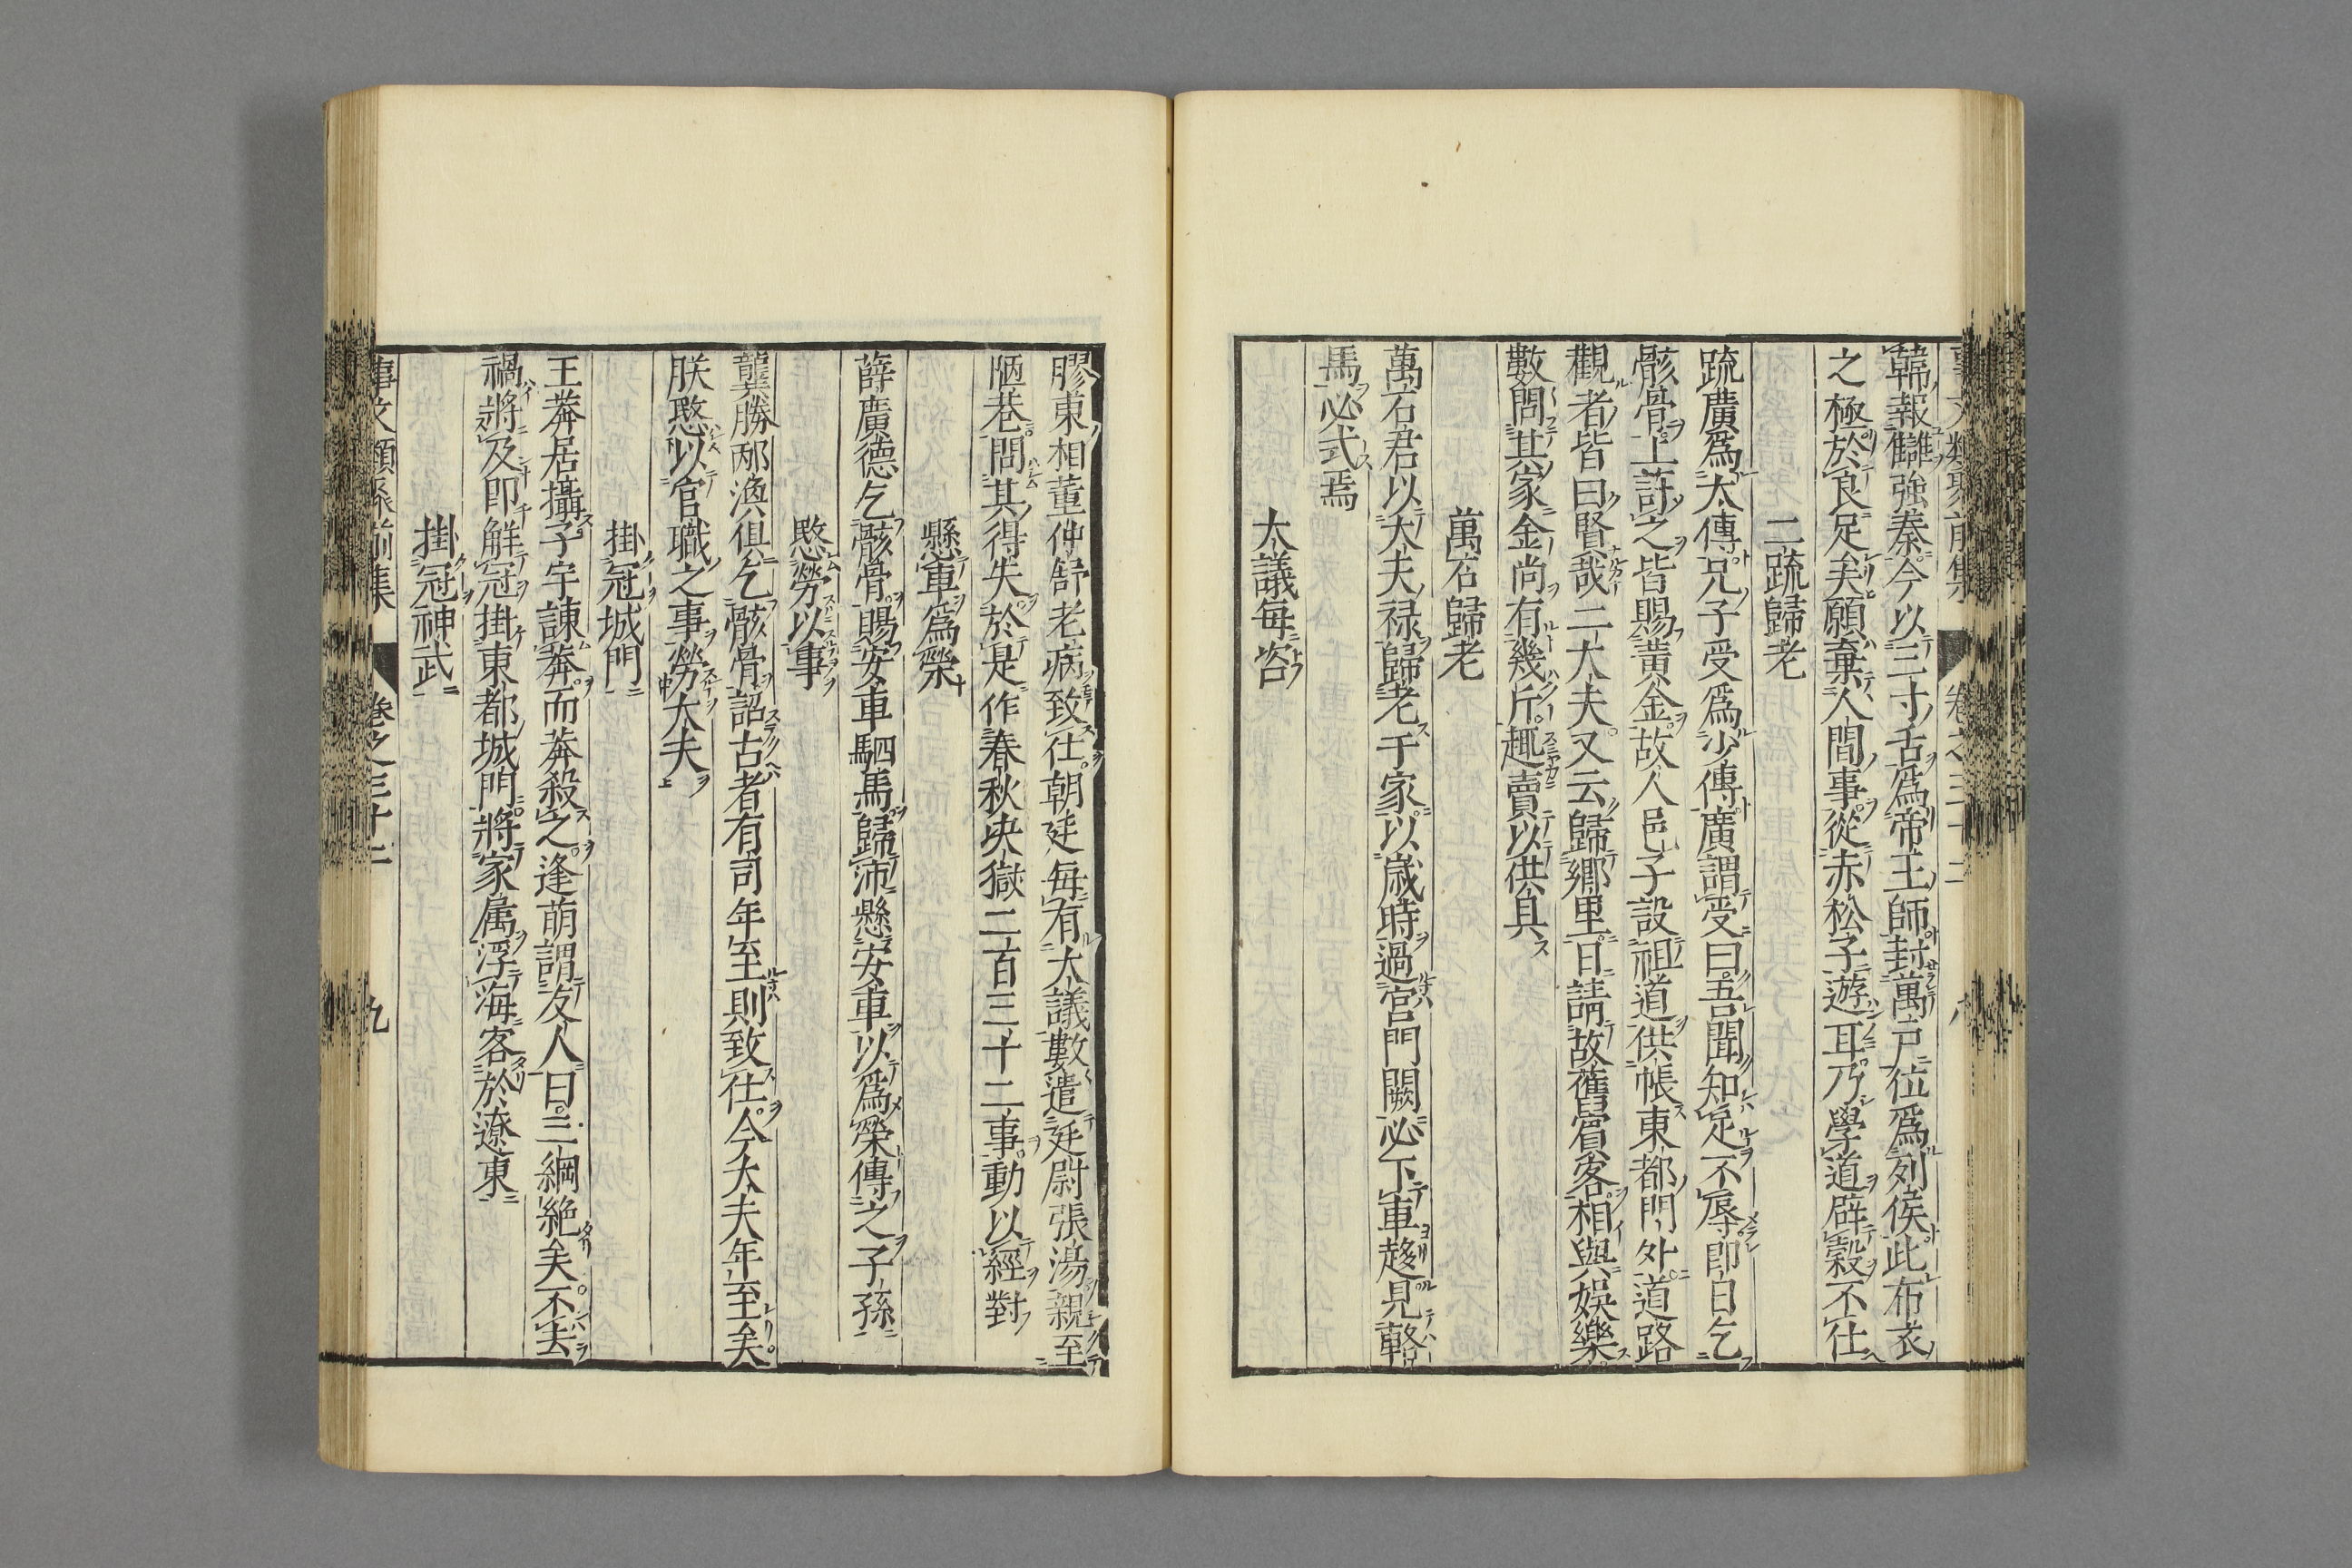 韓報讎強秦今以三寸舌爲帝王師封萬戸位爲列侯此布衣
之極於良足矣願棄人間事從赤松子遊耳乃學道辟穀不仕
二疏歸老
疏廣爲太傅兄子受爲少傅廣謂受曰吾聞知足不辱即日乞
骸骨上許之皆賜黄金故人邑子設祖道供帳東都門外道路
觀者皆曰賢哉二大夫又云歸鄉里日請故舊賓客相與娯樂
數問其家金尚有幾斤趣賣以供具
萬石歸老
萬石君以大夫禄歸老于家以歳時過宮門闕必下車趍見輅
馬必式焉
大議毎咨
膠東相董仲舒老病致仕朝廷毎有大議數遣廷尉張湯親至
陋巷問其得失於是作春秋决獄二百三十二事動以經對
懸車爲榮
薛廣德乞骸骨賜安車駟馬歸沛懸安車以爲榮傳之子孫
愍勞以事
龔勝邴漢俱乞骸骨詔古者有司年至則致仕今大夫年至矣
朕愍以官職之事勞大夫
掛冠城門
王莽居攝子宇諌莽而莽殺之逢萌謂友人曰三綱絶矣不去
禍將及即解冠掛東都城門將家属浮海客於遼東
掛冠神武
卷之三十二 九